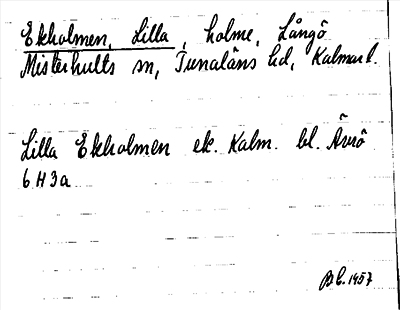 Ekholmen, Lilla, holme, Långö
Misterhults sn, Tunaläns hd, Kalmar l.
Lilla Ekholmen ek. Kalm. bl. Ävrö
6 H 3a
1957